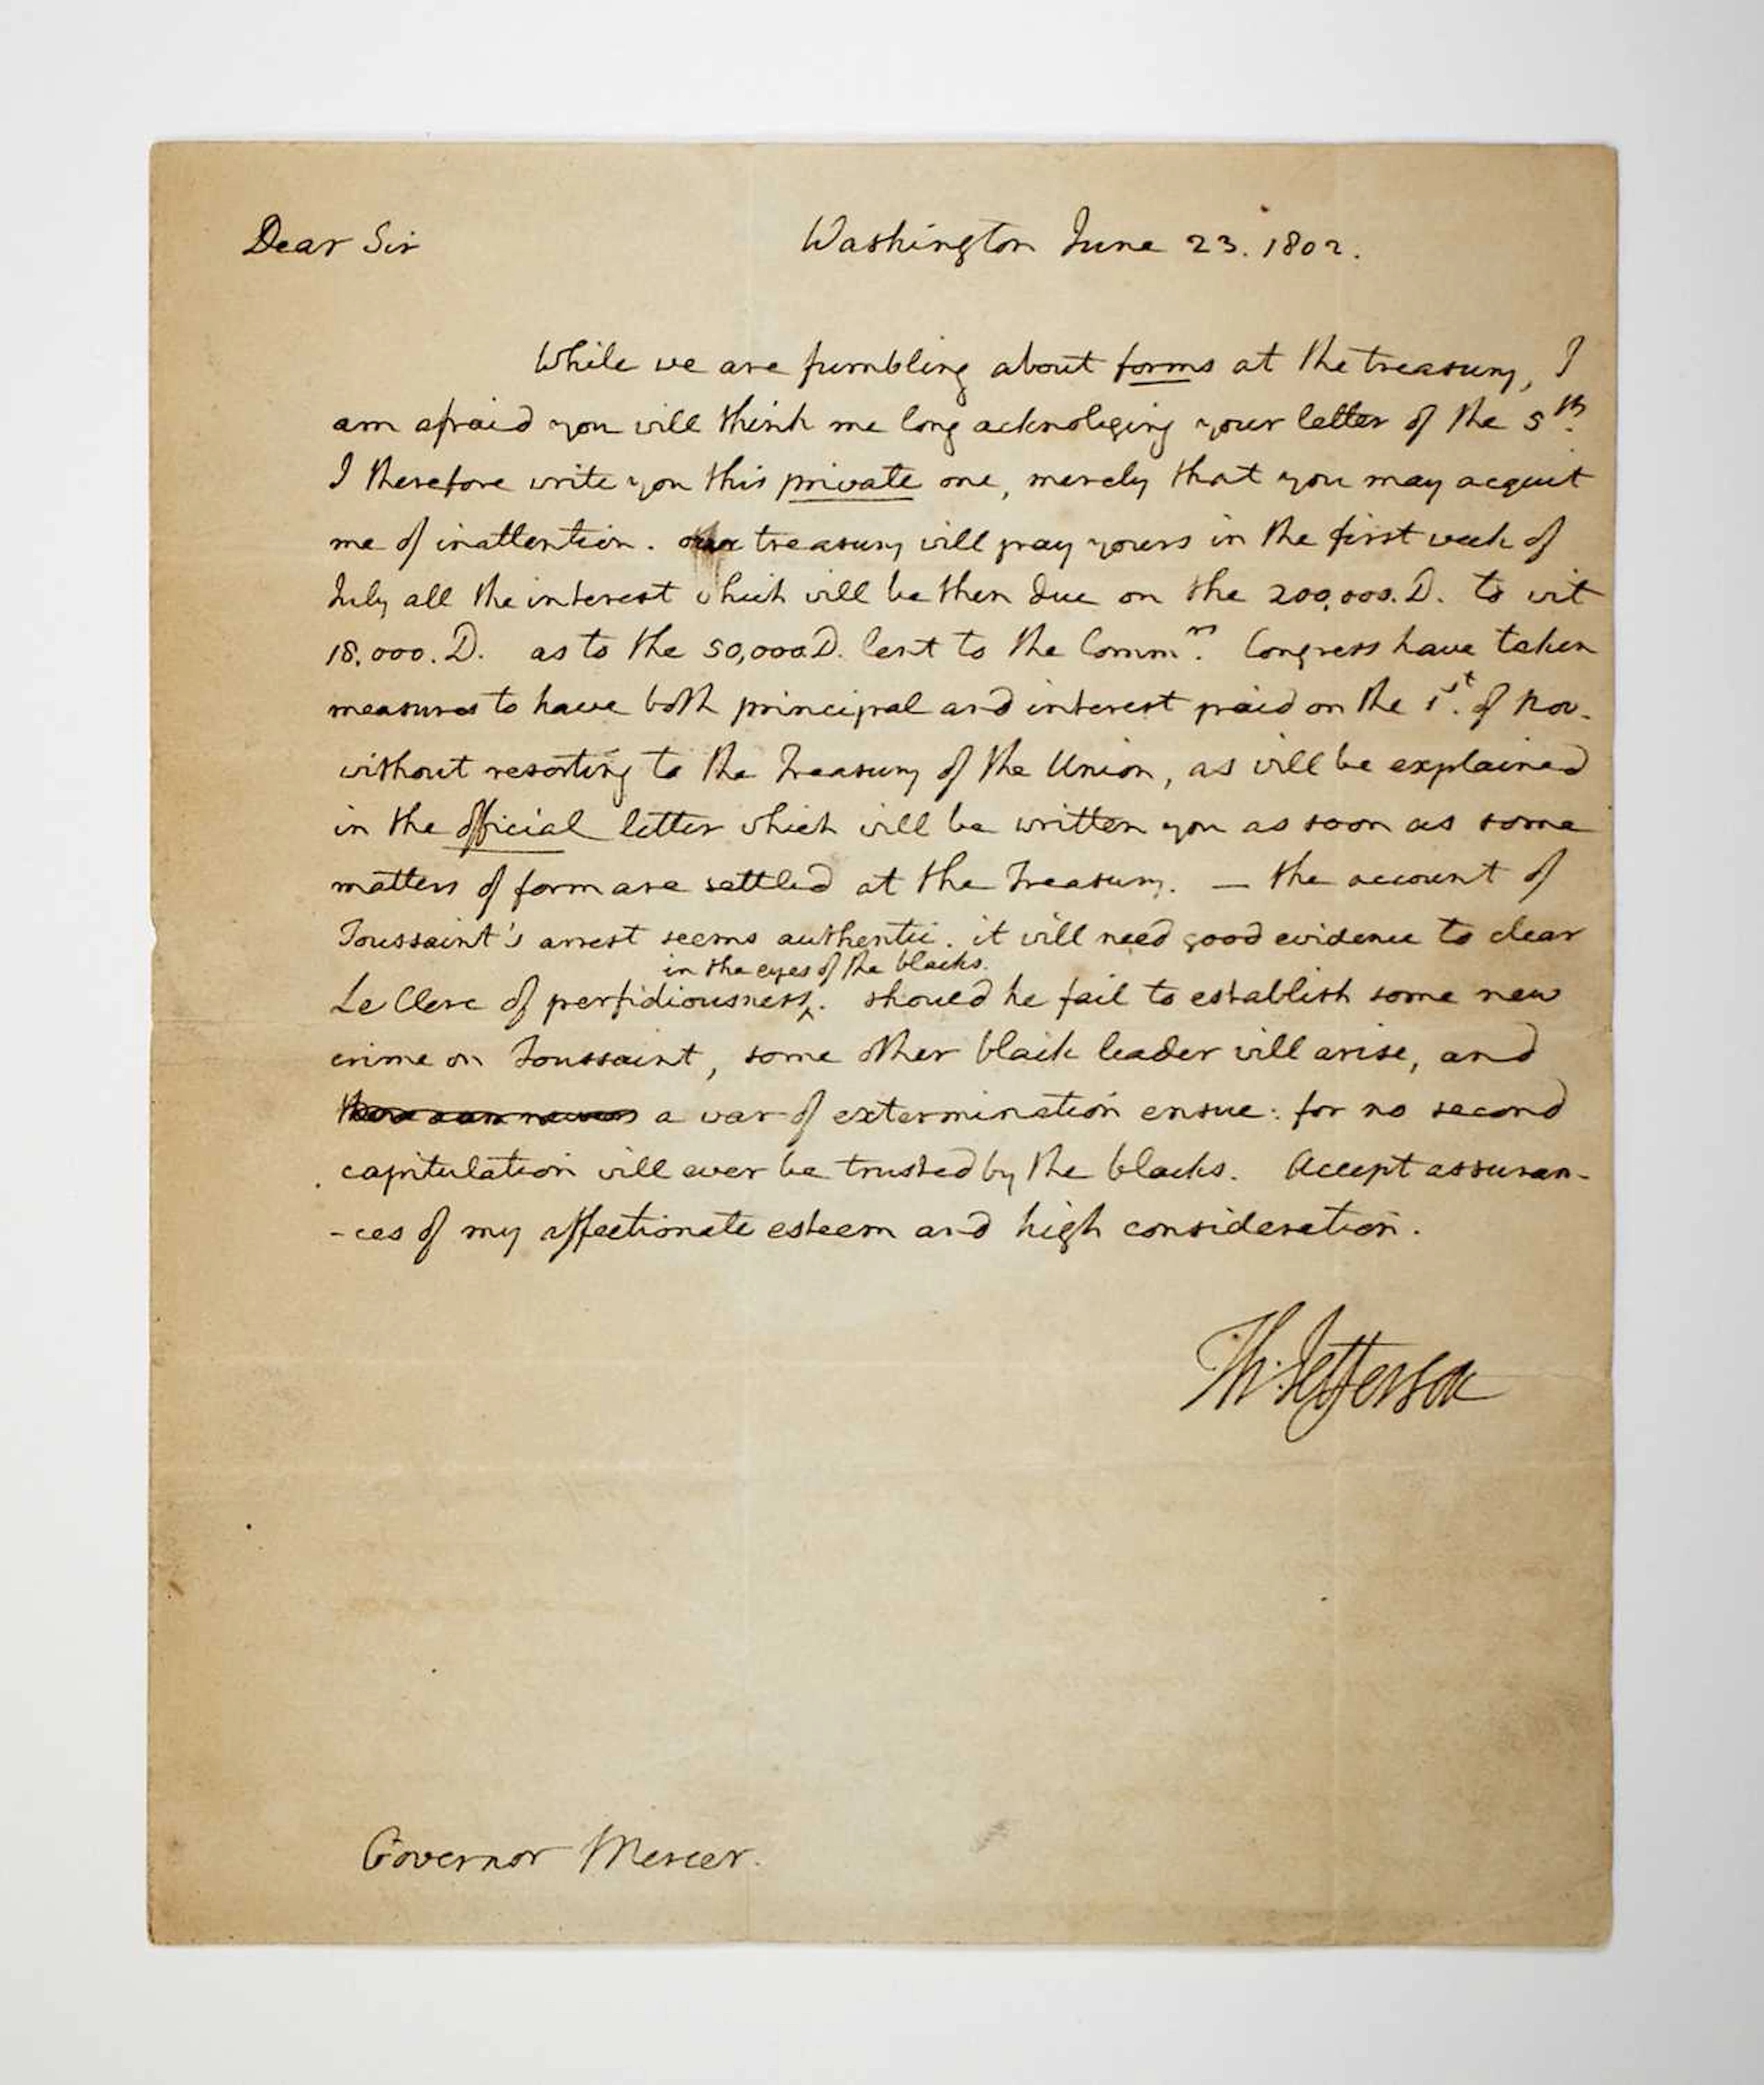 Dear Sir Washington June 23. 1802.
While we are fumbling about forms at the treasury, I
am afraid you will think me long acknoleging your letter of the 5th.
I therefore write you this private one, merely that you may acquit
me of inattention. our treasury will pay yours in the first week of
July all the interest which will be then due on the 200,000. D. to wit
18,000. D. as to the 50,000 D. lent to the Commrs. Congress have taken
measures to have both principal and interest paid on the 1st. of Nov.
without resorting to the Treasury of the Union, as will be explained
in the official letter which will be written you as soon as some
matters of form are settled at the Treasury. — the account of
Toussaint's arrest seems authentic. it will need good evidence to clear
in the eyes of the blacks.
Le Clerc of perfidiousness^. should he fail to establish some new
crime on Toussaint, some other black leader will arise, and
a war of extermination ensue: for no second
capitulation will ever be trusted by the blacks. Accept assuran-
-ces of my affectionate esteem and high consideration.
Th: Jefferson
Governor Mercer.